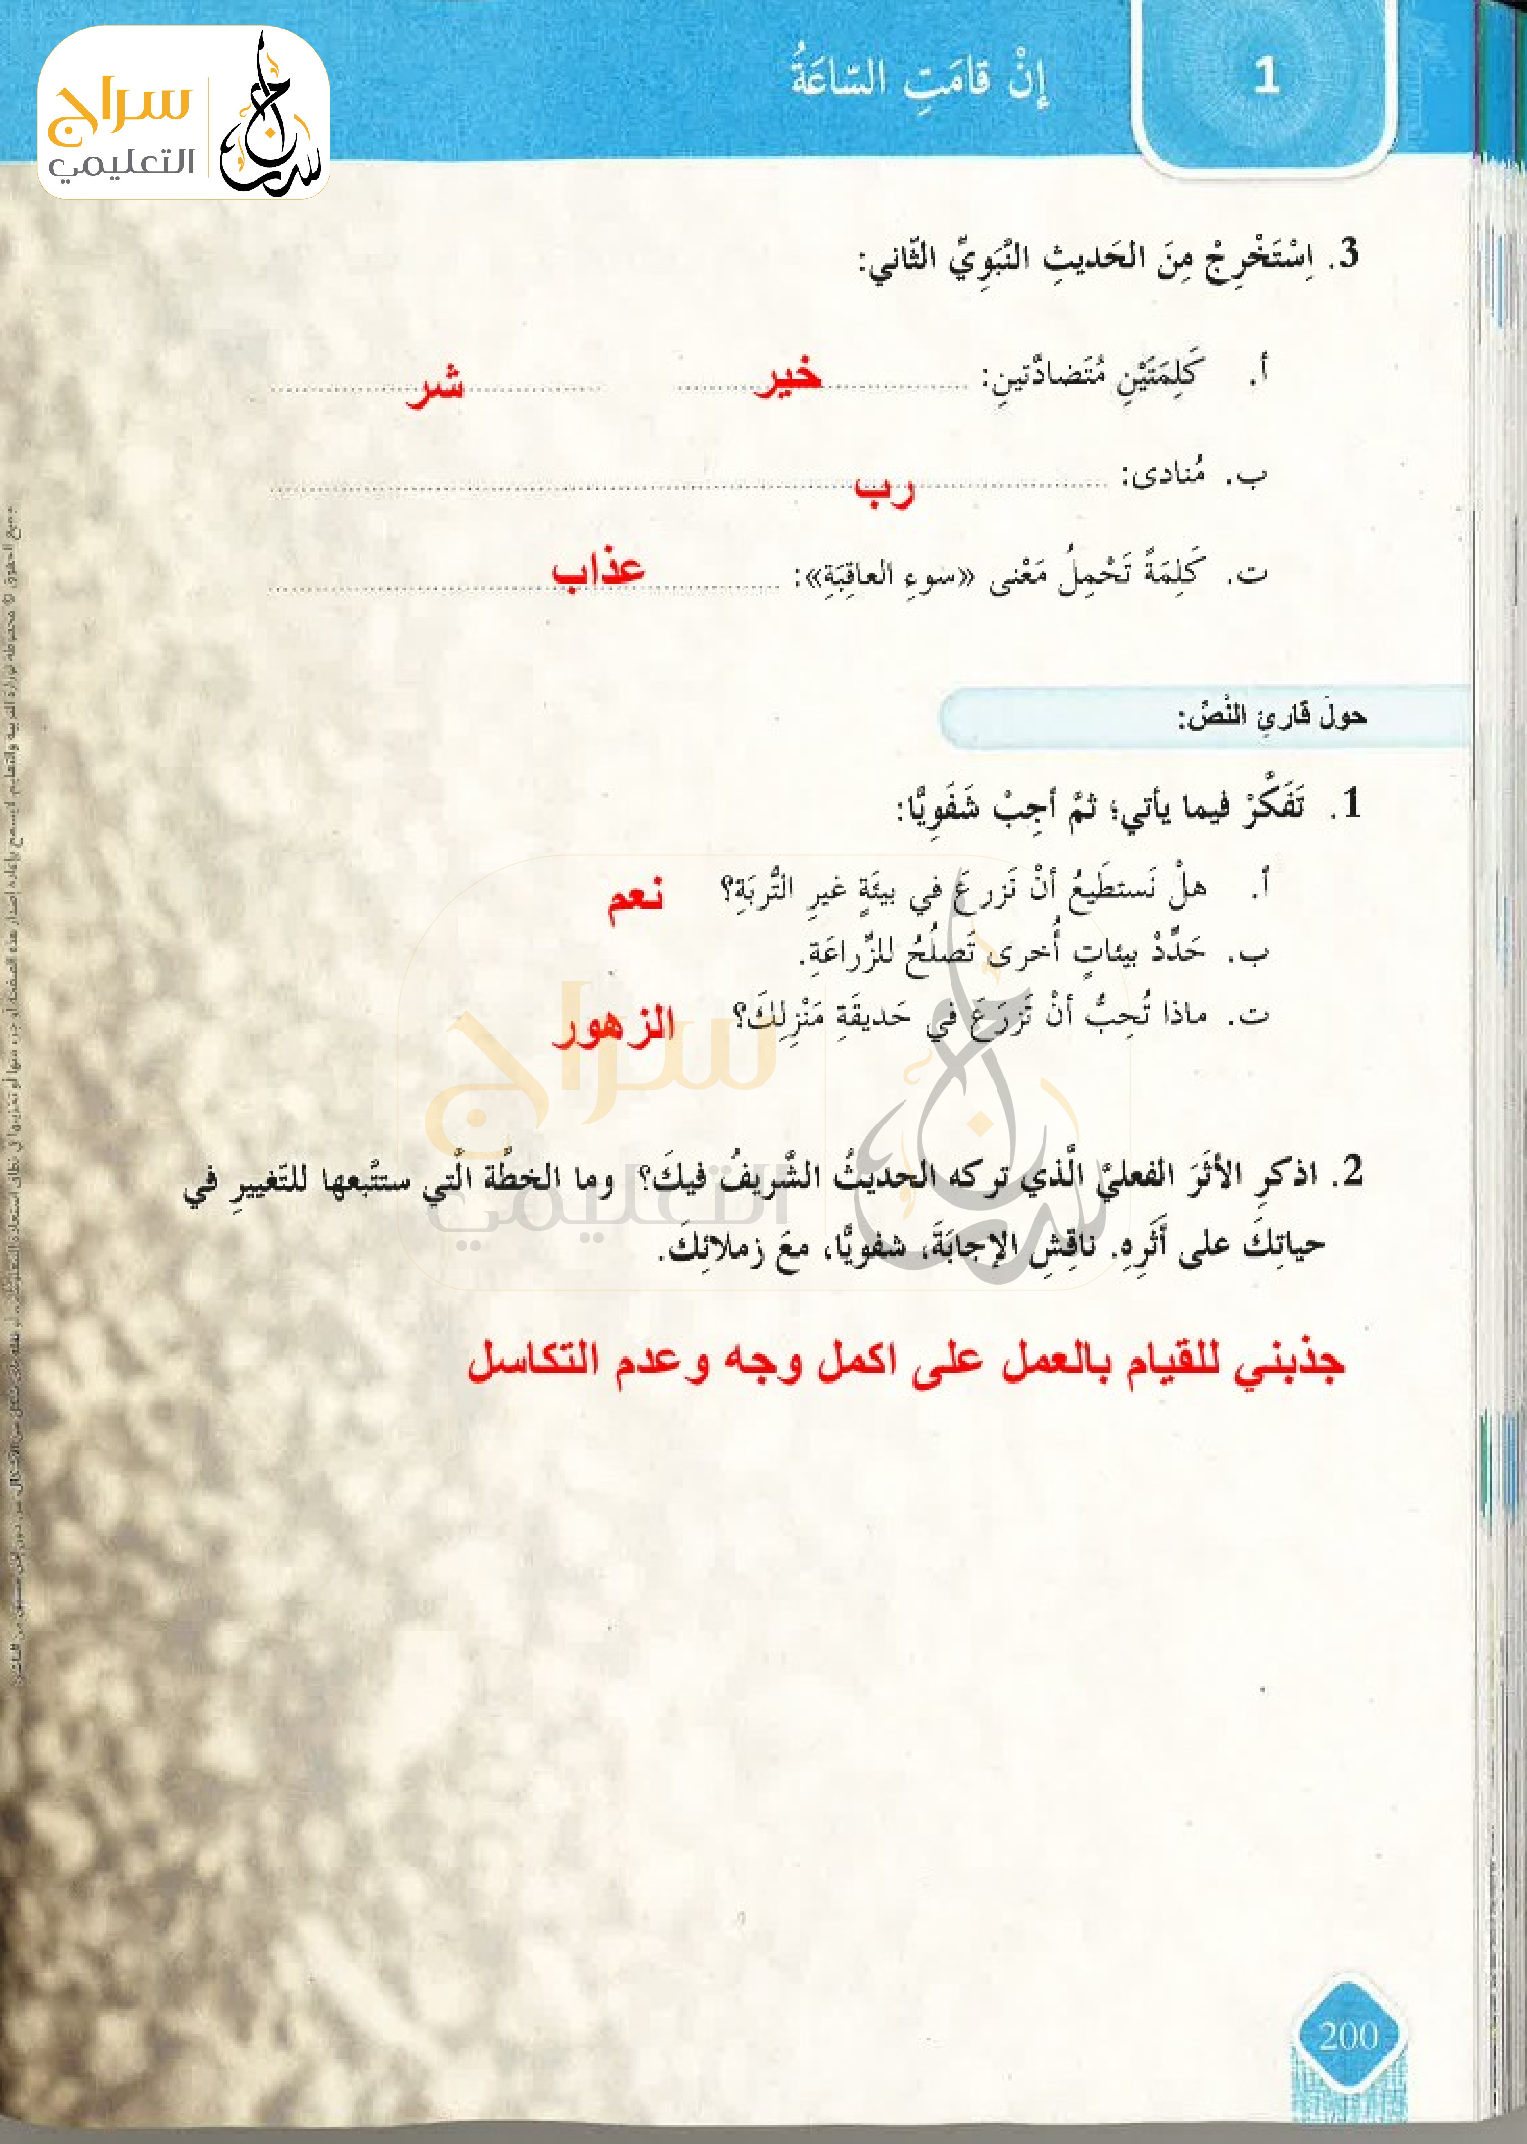 سراج
التعليمي
إِنْ قامَتِ السّاعَةُ
1
3. اِسْتَخْرِجْ مِنَ الحَديثِ النَّبَوِيِّ الثّاني:
أ. كَلِمَتَيْنِ مُتَضادَّتينِ: خير شر
ب. مُنادى: رب
ت. كَلِمَةً تَحْمِلُ مَعْنى «سوءِ العاقِبَةِ»: عذاب
حولَ قارِئِ النَّصِّ:
1. تَفَكَّرْ فيما يأتي؛ ثمَّ أجِبْ شَفَوِيًّا:
أ. هلْ نَستطَيعُ أنْ نَزرعَ في بيئَةٍ غيرِ التُّربَةِ؟ نعم
ب. حَدِّدْ بيئاتٍ أُخرى تَصلُحُ للزِّراعَةِ.
ت. ماذا تُحِبُّ أنْ تَزرَعَ في حَديقَةِ مَنْزِلِكَ؟ الزهور
2. اذكرِ الأثَرَ الفعليَّ الَّذي تركه الحديثُ الشَّريفُ فيكَ؟ وما الخطَّة الَّتي ستتَّبعها للتَغييرِ في
حياتِكَ على أَثَرِهِ. ناقِشِ الإجابَةَ، شفويًّا، معَ زملائِكَ.
جذبني للقيام بالعمل على اكمل وجه وعدم التكاسل
200